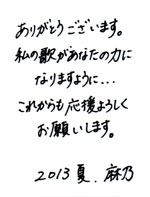 ありがとうございます。
私の歌があなたの力に
なりますように...
これからも応援よろしく
お願いします。
2013 夏. 麻乃